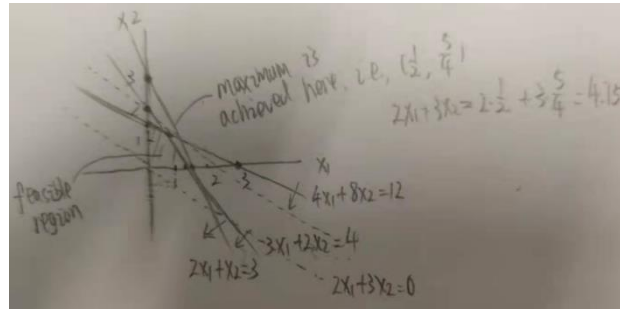 x2
maximum is
achieved here, i.e, (1/2, 5/4)
2x1+3x2=2·1/2+3·5/4=4.75
3
2
1
1
2
3
x1
feasible
region
4x1+8x2=12
3x1+2x2=4
2x1+x2=3
2x1+3x2=0